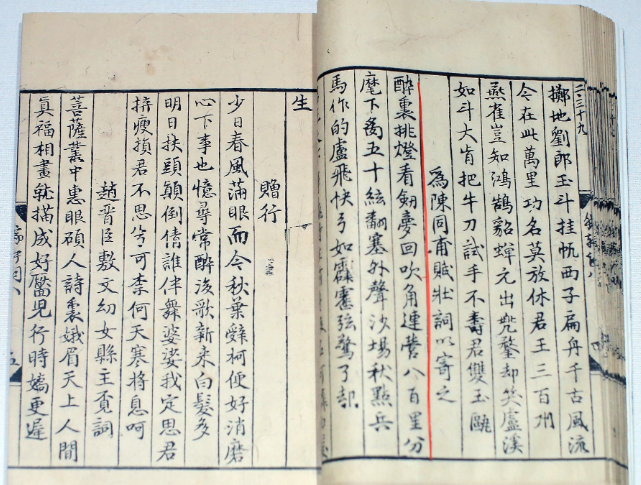 二三十九
擲地劉郎玉斗挂帆西子扁舟千古風流
今在此萬里功名莫放休君王三百州
燕雀豈知鴻鵠貂蟬元出兜鍪却笑盧溪
如斗大肯把牛刀試手不壽君雙玉甌
爲陳同甫賦壯詞以寄之
醉裏挑燈看劔夢回吹角連營八百里分
麾下炙五十絃翻塞外聲沙場秋點兵
馬作的盧飛快弓如霹靂弦驚了却
生
贈行
少日春風滿眼而今秋葉辭柯便好消磨
心下事也憶尋常醉後歌新来白髮多
明日扶頭顛倒倩誰伴舞婆娑我定思君
拚瘦損君不思兮可柰何天寒將息呵
趙晋臣敷文幼女縣主覓詞
菩薩叢中惠眼碩人詩裏娥眉天上人間
真福相畫就描成好靨兒行時嬌更遲